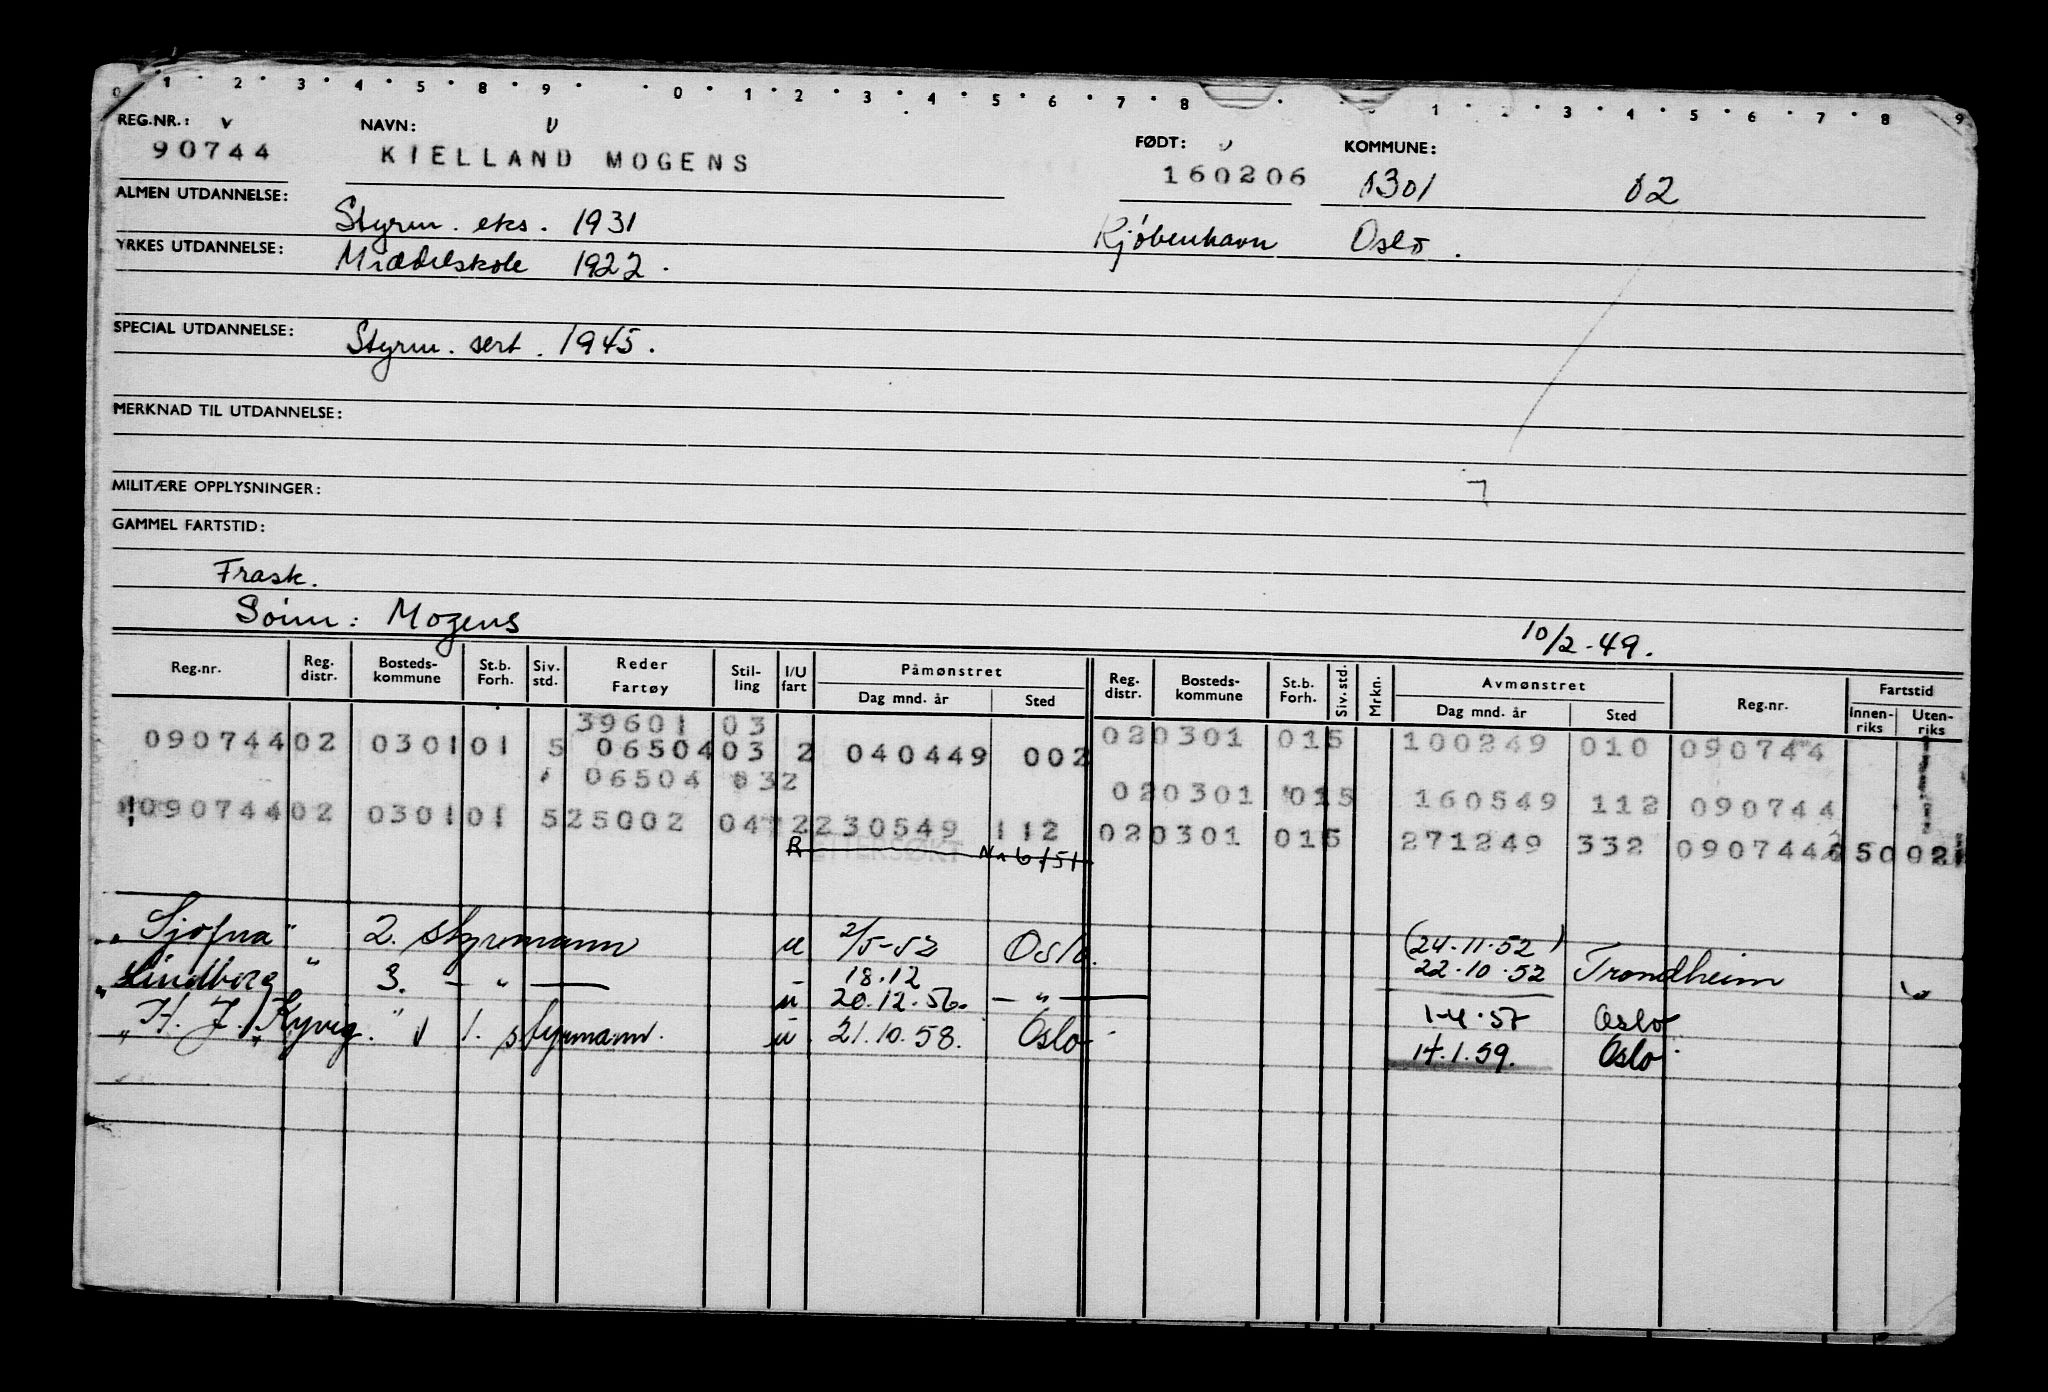 0 1 2 3 4 5 8 9 0 1 2 3 4 5 6 7 8 1 2 3 4 5 6 7 8 9
REG.NR.: v NAVN: v FØDT: v KOMMUNE:
90744 KIELLAND MOGENS 160206 0301 02
ALMEN UTDANNELSE: Styrm. eks. 1931 Kjøbenhavn Oslo.
YRKES UTDANNELSE: Middelskole 1922.
SPECIAL UTDANNELSE: Styrm. sert. 1945.
MERKNAD TIL UTDANNELSE:
MILITÆRE OPPLYSNINGER:
GAMMEL FARTSTID:
Frask.
Sönn: Mogens 10/2-49.
Reg.nr. Reg. distr. Bosteds-kommune St.b. Forh. Siv. std. Reder Fartøy Stil-ling I/U fart Påmønstret Dag mnd. år Sted Reg. distr. Bosteds-kommune St.b. Forh. Siv. std. Mrkn. Avmønstret Dag mnd. år Sted Reg.nr. Fartstid Innen-riks Uten-riks
39601 03 020301 015 100249 010 090744
090744 02 0301 01 5 06504 03 2 040449 002
06504 032 020301 015 160549 112 090744
090744 02 0301 01 5 25002 047 2 230549 112 020301 015 271249 332 090744
ETTERSØKT Nr 6/51
"Sjofna" 2. styrmann u 2/5-52 Oslo. (24.11.52) 22.10.52 Trondheim
"Lindberg" 3. — " — u 18.12 20.12.56. — " — 1-4-57 Oslo
"H. J. Kyvig." v 1. styrmann. u 21.10.58. Oslo 14.1.59. Oslo.